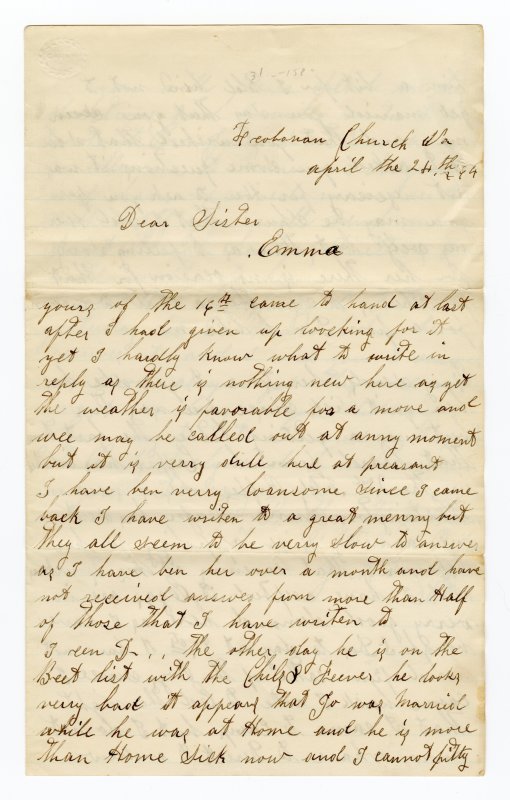 31 - 158
Freobanan Church Va
april the 24th 64
Dear Sister
Emma
yours of the 16th came to hand at last
after I had given up loocking for it
yet I hardly know what to write in
reply as there is nothing new here as yet
the weather is favorable for a move and
wee may be called out at anny moment
but it is verry dull here at preasant
I have ben verry loansome since I came
back I have writen to a great menny but
they all seem to be verry slow to answer
as I have ben her over a month and have
not received answer from more than Half
of those that I have writen to
I seen D - . . the other day he is on the
Beet list with the Chils & Feever he looks
verry bad it appears that Jo was Married
while he was at Home and he is more
than Home sick now and I cannot pitty